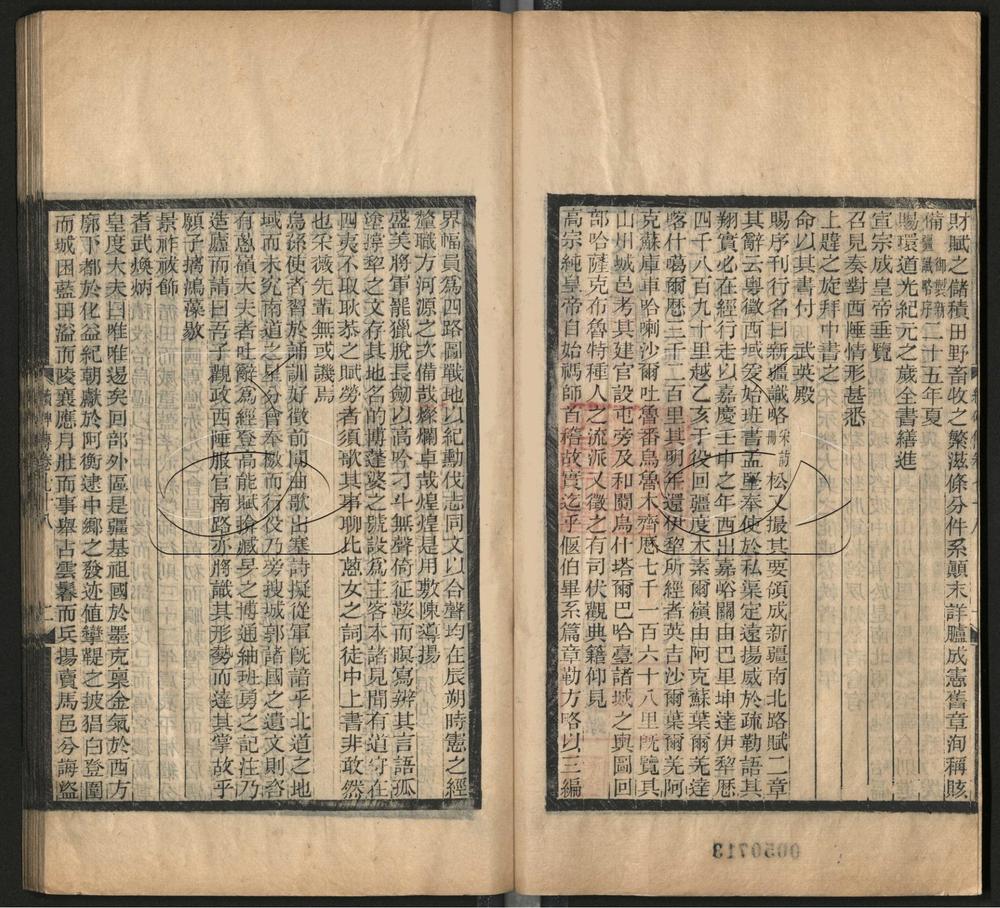 財賦之儲積田野畜牧之繁滋條分件系顛末詳臚成憲舊章洵稱賅
備御製新疆識略序二十五年夏
賜環道光紀元之歲全書繕進
宣宗成皇帝垂覽
召見奏對西陲情形甚悉
上韙之旋拜中書之
命以其書付 武英殿
賜序刊行名曰新疆識略 松又撮其要領成新疆南北路賦二章
其辭云粵徵西域爰始班書孟堅奉使於私渠定遠揚威於疏勒語其
翔實必在經行走以嘉慶壬申之年西出嘉峪關由巴里坤達伊犁歷
四千八百九十里越乙亥于役回疆度木素爾嶺由阿克蘇葉爾羌達
喀什噶爾歷三千二百里其明年還伊犁所經者英吉沙爾葉爾羌阿
克蘇庫車哈喇沙爾吐魯番烏魯木齊歷七千一百六十八里既覽其
山川城邑考其建官設屯旁及和闐烏什塔爾巴哈臺諸城之輿圖回
部哈薩克布魯特種人之流派又徵之有司伏觀典籍仰見
高宗純皇帝自始禡師首稽故實迄乎偃伯畢系篇章勒方略以三編
界幅員為四路圖戰地以紀勳伐志同文以合聲均在辰朔時憲之經
釐職方河源之次備哉燦爛卓哉煌煌是用敷陳導揚
盛美將軍龍獵脫長劍以高吟刁斗無聲倚征鞍而瞑寫辨其言語孤
塗撐犁之文存其地名的博蓬婆之號設為主客本諸見聞有道守在
四夷不取耿恭之賦勞者須歌其事聊比蔥女之詞徒中上書非敢然
也采薇先輩無或譏焉
烏孫使者習於誦訓好徵前聞油歌出塞詩擬從軍既諳乎北道之地
域而未究南道之星分會奉檄而行役乃旁搜城郭諸國之遺文則咨
有蔥嶺大夫者吐辭為經登高能賦搶臧旻之博通紬班勇之記注乃
造廬而請曰吾子觀政西陲服官南路亦將識其形勢而達其掌故乎
願子摛鴻藻敭
景祚祓飾
耆武煥炳
皇度大夫曰唯唯遏矣回部外區是疆基祖國於墨克稟金氣於西方
廓下都於化益紀朝獻於阿衡逮中鄉之發迹值攣鞮之披猖白登圍
而城困藍田溢而陵襄應月壯而事舉占雲鬈而兵揚賣馬邑兮誨盜